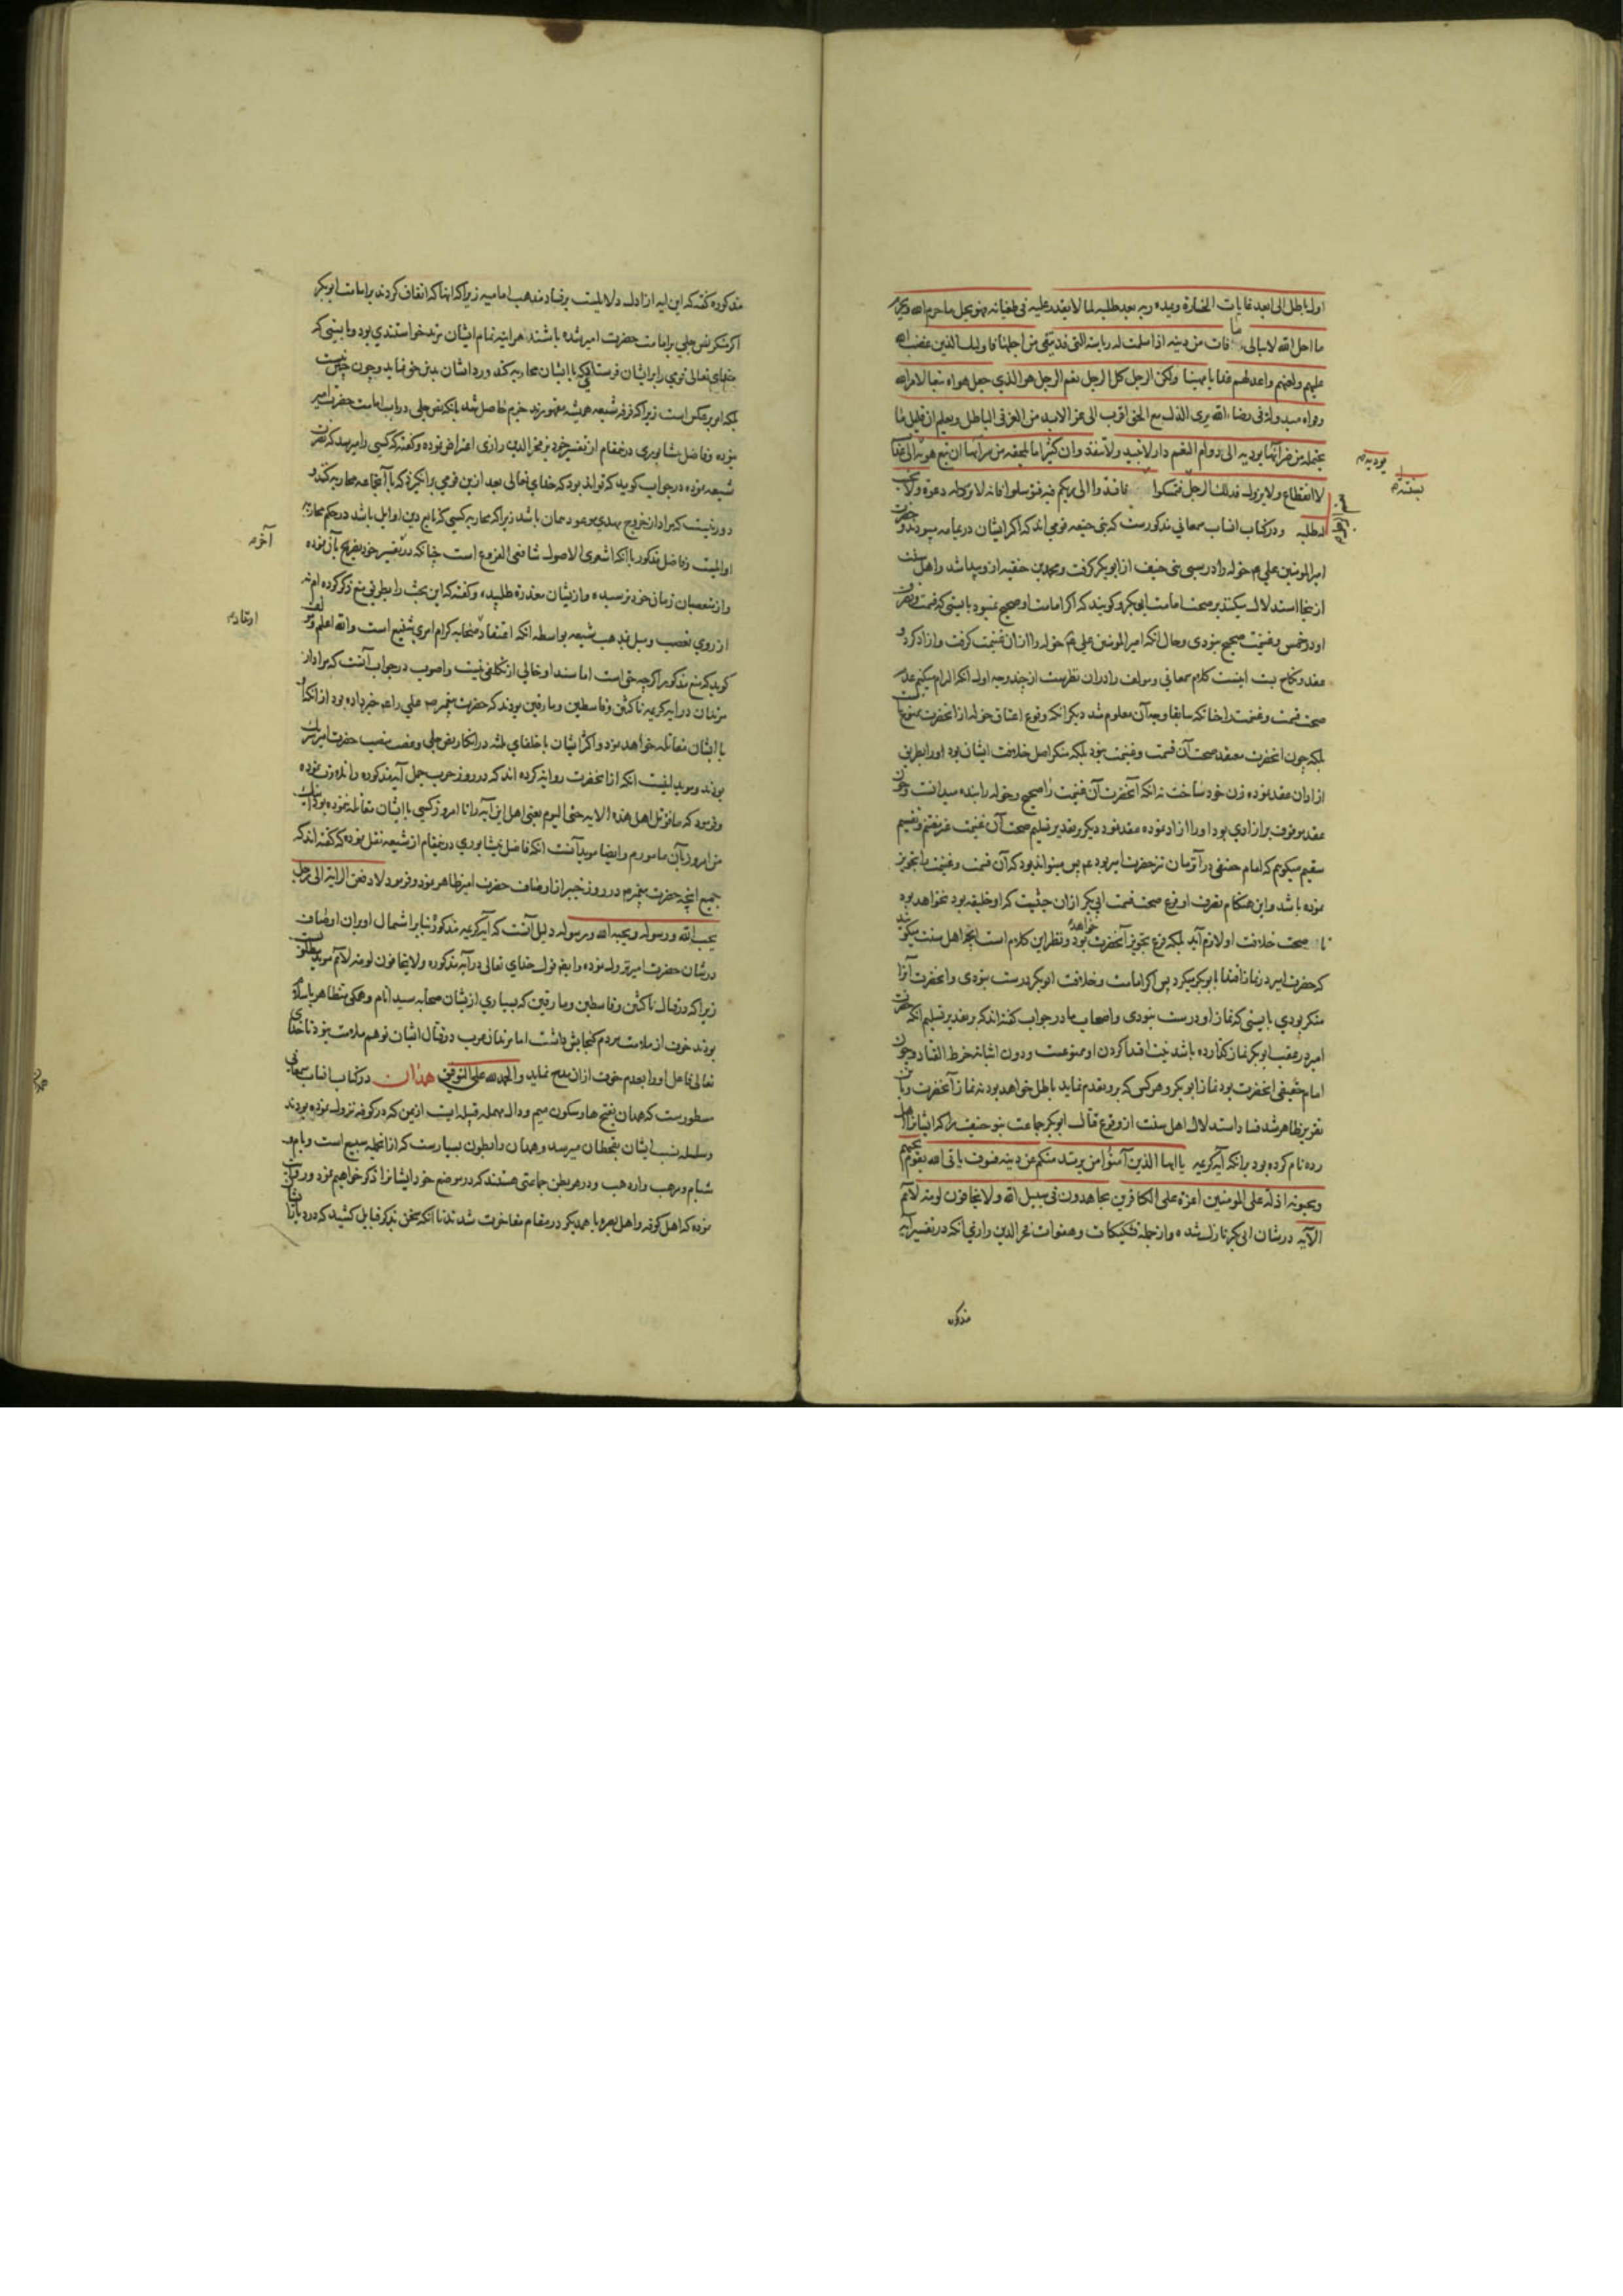 اول باطل الی ابعد غایات الخسارة ویمده ربه بعد طلبه لما لا یقدر علیه فی طغیانه فهو یحل ما حرم الله ویحرم
ما احل الله لا یبالی ما فات من دینه اذا سلمت له ریاسته التی قد یتقی من اجلها فاولیک الذین غضب الله
علیهم ولعنهم واعد لهم عذابا مهینا ولکن الرجل کل الرجل نعم الرجل هو الذی جعل هواه تبعا لامر الله
وقواه مبذولة فی رضاء الله یری الذل مع الحق اقرب الی عز الابد من العز فی الباطل ویعلم ان قلیل ما
یحتمله من ضرائها یودیه الی دوام النعم فی دار لا تبید ولا تنفد وان کثیر ما یلحقه من سرائها ان تبع هواه یودیه الی عذاب
لا انقطاع له ولا یزول فذلک الرجل فتمسکوا فاقتدوا والی ربکم فبه فتوسلوا فانه لا ترد له دعوة ولا یخیب
له طلبه ودر کتاب انساب سمعانی مذکورست که بنی حنیفه قومی اند که اکثر ایشان در یمامه میبودند و حضرت
امیر المومنین علی ع م خوله را در سبی بنی حنیفه از ابوبکر گرفت و محمد بن حنفیه ازو پیدا شد و اهل سنت
ازینجا استدلال میکنند بر صحت امامت ابی بکر و گویند که اگر امامت او صحیح نمیبود بایستی که قسمت و تصرف
او در خمس و غنیمت صحیح نبودی و حال آنکه امیر المومنین علی ع م خوله را از ان غنیمت گرفت و آزاد کرد و
عقد و نکاح بست اینست کلام سمعانی و مولف را در ان نظرست از چند وجه اول آنکه الزام میکنیم عدم
صحت قسمت و غنیمت را چنانکه سابقا وجه آن معلوم شد دیگر آنکه وقوع اعتاق خوله از آنحضرت ممنوعست
بلکه چون آنحضرت معتقد صحت آن قسمت و غنیمت نبود بلکه منکر اصل خلافت ایشان بود او را بطریق
ازادان عقد نموده زن خود ساخت نه آنکه آنحضرت آن غنیمت را صحیح و خوله را بنده میدانست و چون
عقد موقوف بر ازادی بود او را ازاد نموده عقد نمود دیگر بر تقدیر تسلیم صحت آن غنیمت غیر مغتنم و تقسیم
سقیم میگویم که امام حقیقی در آنزمان نزد حضرت امیر بود ع م پس میتواند بود که آن قسمت و غنیمت با تجویز
نموده باشد و این هنگام تصرف او فرع صحت قسمت ابی بکر از ان حیثیت که او خلیفه بود نخواهد بود
تا صحت خلافت او لازم آید بلکه فرع تجویز آنحضرت خواهد بود و نظیر این کلام است آنچه اهل سنت میگویند
که حضرت امیر در نماز اقتدا با ابوبکر میکرد پس اگر امامت و خلافت ابوبکر درست نبودی و آنحضرت آنرا
منکر بودی بایستی که نماز او درست نبودی و اصحاب ما در جواب گفته اند که بر تقدیر تسلیم آنکه حضرت
امیر در عقب ابوبکر نماز گذارده باشد نیت اقتدا کردن او ممنوعست و دون اثباته خرط القتاد و چون
امام حقیقی آنحضرت بود نماز ابوبکر و هر کس که برو تقدم نماید باطل خواهد بود نه نماز آنحضرت و باین
تقریر ظاهر شد فساد استدلال اهل سنت از وقوع قتال ابوبکر جماعت بنو حنیفه را که ایشانرا اهل
رده نام کرده بود برانکه آیه کریمه یا ایها الذین آمنوا من یرتد منکم عن دینه فسوف یاتی الله بقوم یحبهم
ویحبونه اذلة علی المومنین اعزة علی الکافرین یجاهدون فی سبیل الله ولا یخافون لومة لائم
الآیه در شان ابی بکر نازل شده و از جمله تشکیکات و هفوات فخر الدین رازی آنکه در تفسیر آیه
مذکوره
مذکوره گفته که این آیه از ادل دلایلست بر فساد مذهب امامیه زیرا که آنها که اتفاق کردند بر امامت ابوبکر
اگر منکر نص جلی بر امامت حضرت امیر شده باشند هر آینه تمام ایشان مرتد خواستندی بود و بایستی که
خدای تعالی قومی را بر ایشان فرستادی که با ایشان محاربه کند و رد ایشان بدین حق نماید و چون چنین نیست
بلکه امر بر عکس است زیرا که فرقه شیعه همیشه مقهورند جزم حاصل شد بانکه نص جلی در باب امامت حضرت امیر
نبوده و فاضل نیشابوری درینمقام از تفسیر خود بر فخر الدین رازی اعتراض نموده و گفته که کسی را میرسد که نصرت
شیعه نموده در جواب گوید که تواند بود که خدای تعالی بعد ازین قومی برانگیزد که با آنجماعه محاربه کند و
دور نیست که مراد از خروج مهدی موعود همان باشد زیرا که محاربه کسی که تابع دین اوایل باشد در حکم محاربه
اوایلست و فاضل مذکور با آنکه اشعری الاصول شافعی الفروع است چنانکه در آخر تفسیر خود تصریح بآن نموده
و از متعصبان زمان خود ترسیده و از ایشان معذرة طلبیده و گفته که این بحث را بطریق منع ذکر کرده ام نه
از روی تعصب و میل بمذهب شیعه بواسطه آنکه اعتقاد ارتداد صحابه کرام امری شنیع است والله اعلم و مولف
گوید که منع مذکور اگرچه حق است اما سند او خالی از تکلفی نیست و اصوب در جواب آنست که مراد از
مرتدان در آیه کریمه ناکثین و قاسطین و مارقین بودند که حضرت پیغمبر ص علی را ع م خبر داده بود از آنکه
با ایشان مقاتله خواهد نمود و اکثر ایشان با خلفای ثلثه در انکار نص جلی و غصب منصب حضرت امیر شریک
بودند و موید اینست آنکه از آنحضرت روایه کرده اند که در روز حرب جمل آیه مذکوره را تلاوت نموده
و فرمود که ما قوتل اهل هذه الآیه حتی الیوم یعنی اهل این آیه را تا امروز کسی با ایشان مقاتله ننموده بود اینک
من امروز بآن مامورم و ایضا موید آنست آنکه فاضل نیشابوری درینمقام از شیعه نقل نموده که گفته اند که
جمیع آنچه حضرت پیغمبر م در روز خیبر از اوصاف حضرت امیر ظاهر نمود و فرمود لادفعن الرایة الی رجل
یحب الله ورسوله ویحبه الله ورسوله دلیل آنست که آیه کریمه مذکوره بنابر اشتمال او بران اوصاف
در شان حضرت امیر نزول نموده و ایضا قول خدای تعالی در آیه مذکوره ولا یخافون لومة لائم موید مطلوبست
زیرا که در قتال ناکثین و قاسطین و مارقین که بسیاری از ایشان صحابه سید انام و همگی متظاهر باسلام
بودند خوف از ملامت مردم گنجایش داشت اما مرتدان عرب در قتال ایشان توهم ملامت نبود تا خدای
تعالی فاعل او را بعدم خوف از ان مدح نماید والحمد لله علی التوفیق همدان در کتاب انساب سمعانی
مسطورست که همدان بفتح ها و سکون میم و دال مهمله قبیله ایست از یمن که در کوفه نزول نموده بودند
و سلسله نسب ایشان بقحطان میرسد و همدان را بطون بسیارست که از آنجمله سبیع است و یام و
شبام و مرهب و ارحب و در هر بطن جماعتی هستند که در موضع خود ایشانرا ذکر خواهیم نمود و روایت
نموده که اهل کوفه و اهل بصره با همدیگر در مقام مفاخرت شدند تا آنکه سخن بذکر قبایل کشید که در دیار ایشان